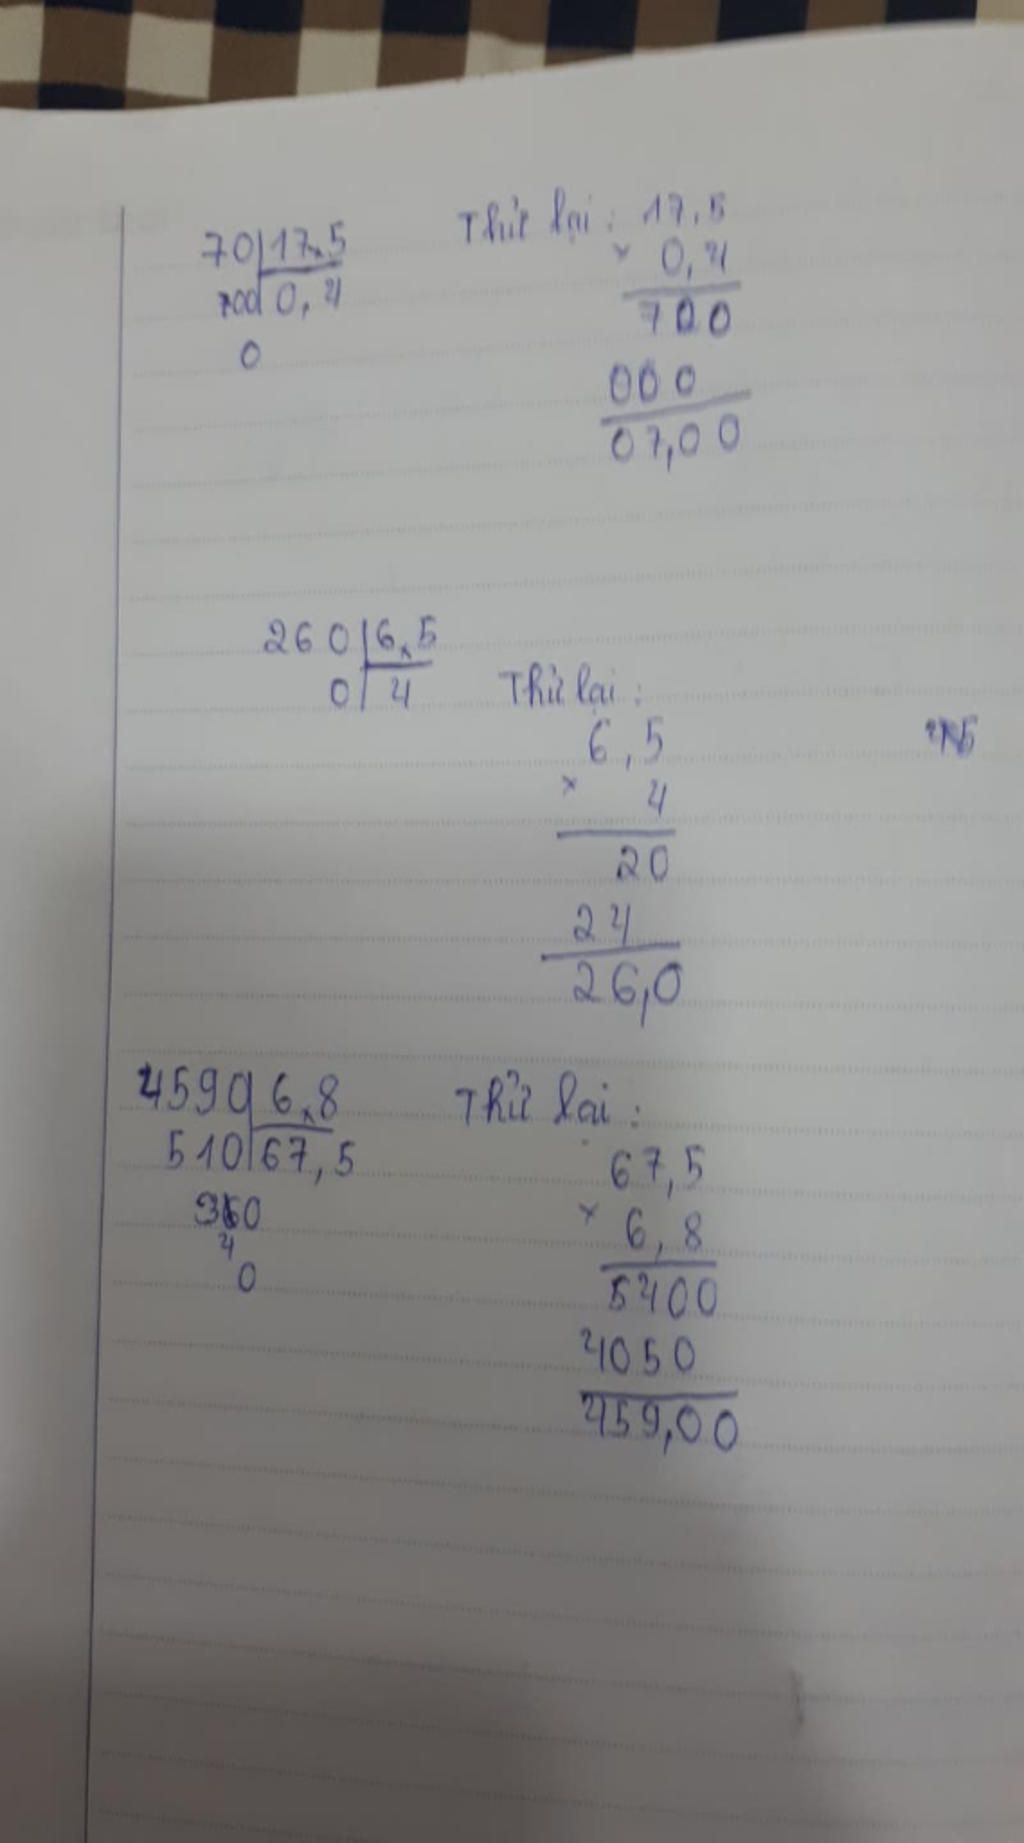 70 17,5 Thử lại: 17,5
700 0,4 × 0,4
0 700
000
07,00
260 6,5
0 4 Thử lại:
6,5
× 4
20
24
26,0
4590 6,8 Thử lại:
510 67,5
67,5
× 6,8
0 5400
4050
459,00